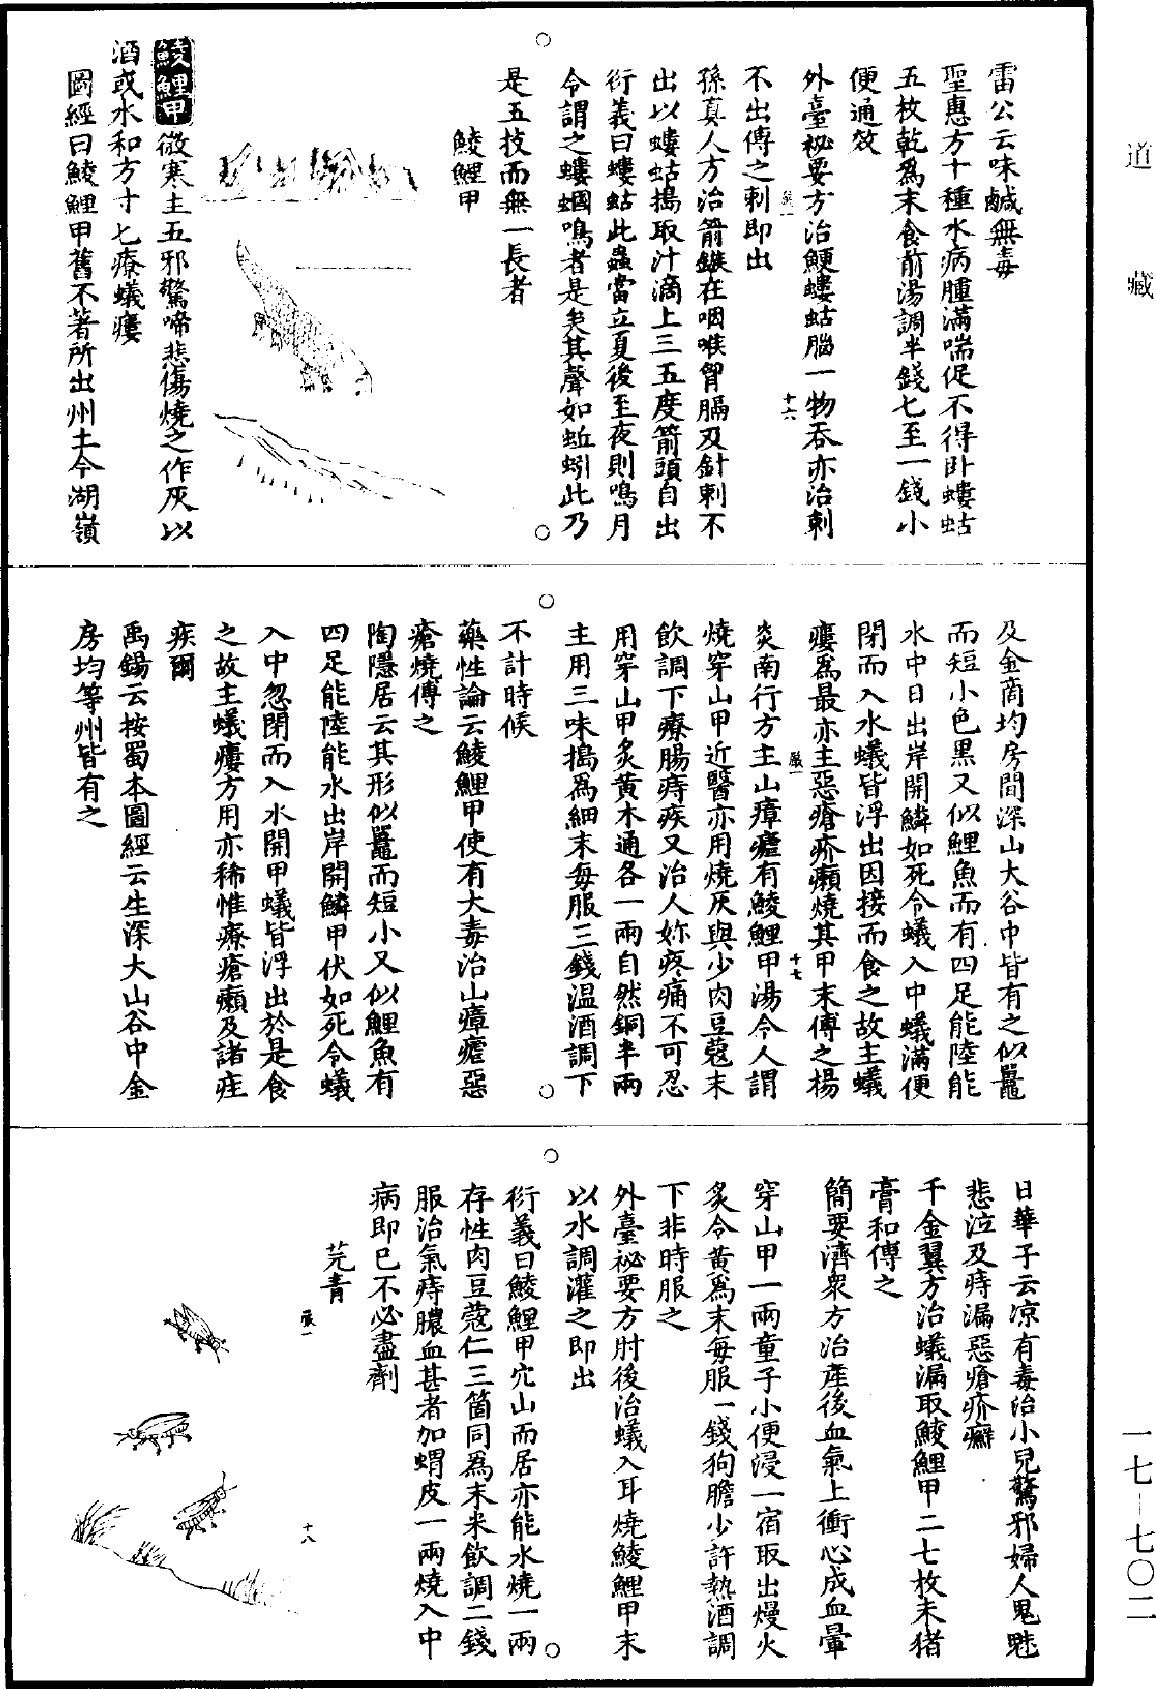 道藏
雷公云味鹹無毒
聖惠方十種水病腫滿喘促不得卧螻蛄
五枚乾爲末食前湯調半錢匕至一錢小
便通效
外臺祕要方治鯁螻蛄腦一物吞亦治刺
不出傅之刺即出
孫真人方治箭鏃在咽喉胷膈及針刺不
出以螻蛄搗取汁滴上三五度箭頭自出
衍義曰螻蛄此蟲當立夏後至夜則鳴月
令謂之螻蟈鳴者是矣其聲如蚯蚓此乃
是五技而無一長者
十六
鯪鯉甲
鯪鯉甲微寒主五邪驚啼悲傷燒之作灰以
酒或水和方寸匕療蟻瘻
圖經曰鯪鯉甲舊不著所出州土今湖嶺
及金商均房間深山大谷中皆有之似鼉
而短小色黑又似鯉魚而有四足能陸能
水中日出岸開鱗如死令蟻入中蟻滿便
閉而入水蟻皆浮出因接而食之故主蟻
瘻爲最亦主惡瘡疥癩燒其甲末傅之楊
炎南行方主山瘴瘧有鯪鯉甲湯今人謂
十七
燒穿山甲近醫亦用燒灰與少肉豆蔻末
飲調下療腸痔疾又治人妳疼痛不可忍
用穿山甲炙黄木通各一兩自然銅半兩
主用三味搗爲細末每服三錢溫酒調下
不計時候
藥性論云鯪鯉甲使有大毒治山瘴瘧惡
瘡燒傅之
陶隱居云其形似鼉而短小又似鯉魚有
四足能陸能水出岸開鱗甲伏如死令蟻
入中忽閉而入水開甲蟻皆浮出於是食
之故主蟻瘻方用亦稀惟療瘡癩及諸疰
疾爾
禹錫云按蜀本圖經云生深大山谷中金
房均等州皆有之
日華子云凉有毒治小兒驚邪婦人鬼魅
悲泣及痔漏惡瘡疥癬
千金翼方治蟻漏取鯪鯉甲二七枚末猪
膏和傅之
簡要濟衆方治產後血氣上衝心成血暈
穿山甲一兩童子小便浸一宿取出熳火
炙令黄爲末每服一錢狗膽少許熱酒調
下非時服之
外臺祕要方肘後治蟻入耳燒鯪鯉甲末
以水調灌之即出
衍義曰鯪鯉甲穴山而居亦能水燒一兩
存性肉豆蔻仁三箇同爲末米飲調二錢
服治氣痔膿血甚者加蝟皮一兩燒入中
病即已不必盡劑
十八
芫青
一七－七〇二